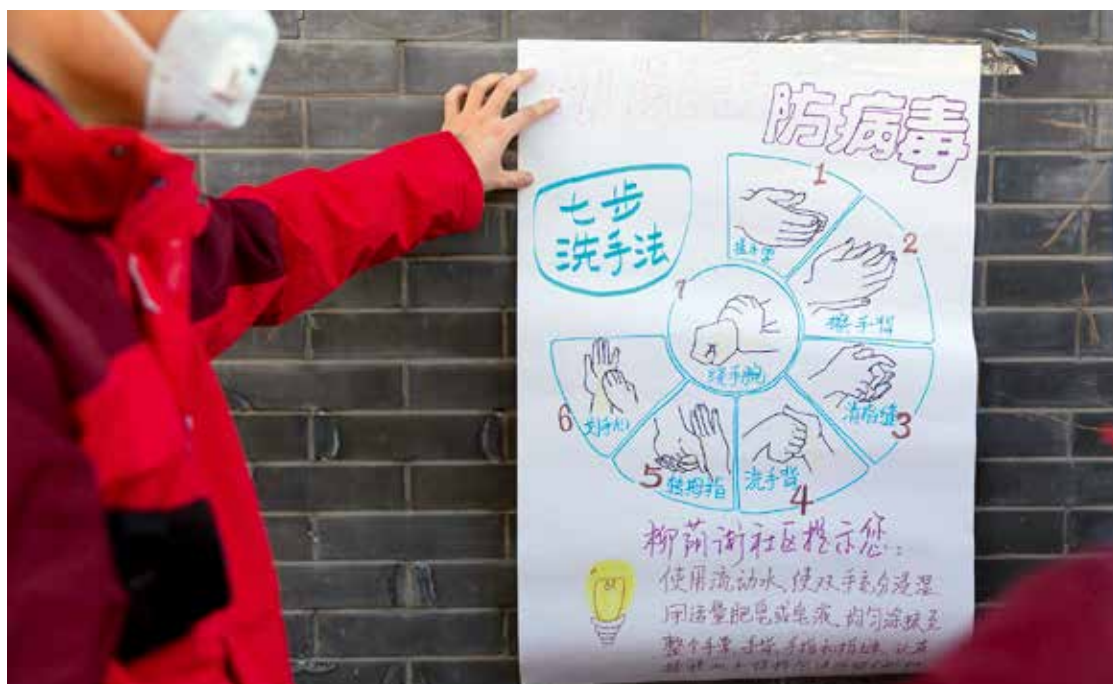 防病毒
七步
洗手法
1
手掌
2
擦手背
3
清指缝
4
洗手背
5
转拇指
6
手心
7
手腕
柳荫街社区提示您：
使用流动水、使双手充分浸湿
用适量肥皂或皂液、均匀涂抹至
整个手掌、手背、手指和指缝、认真